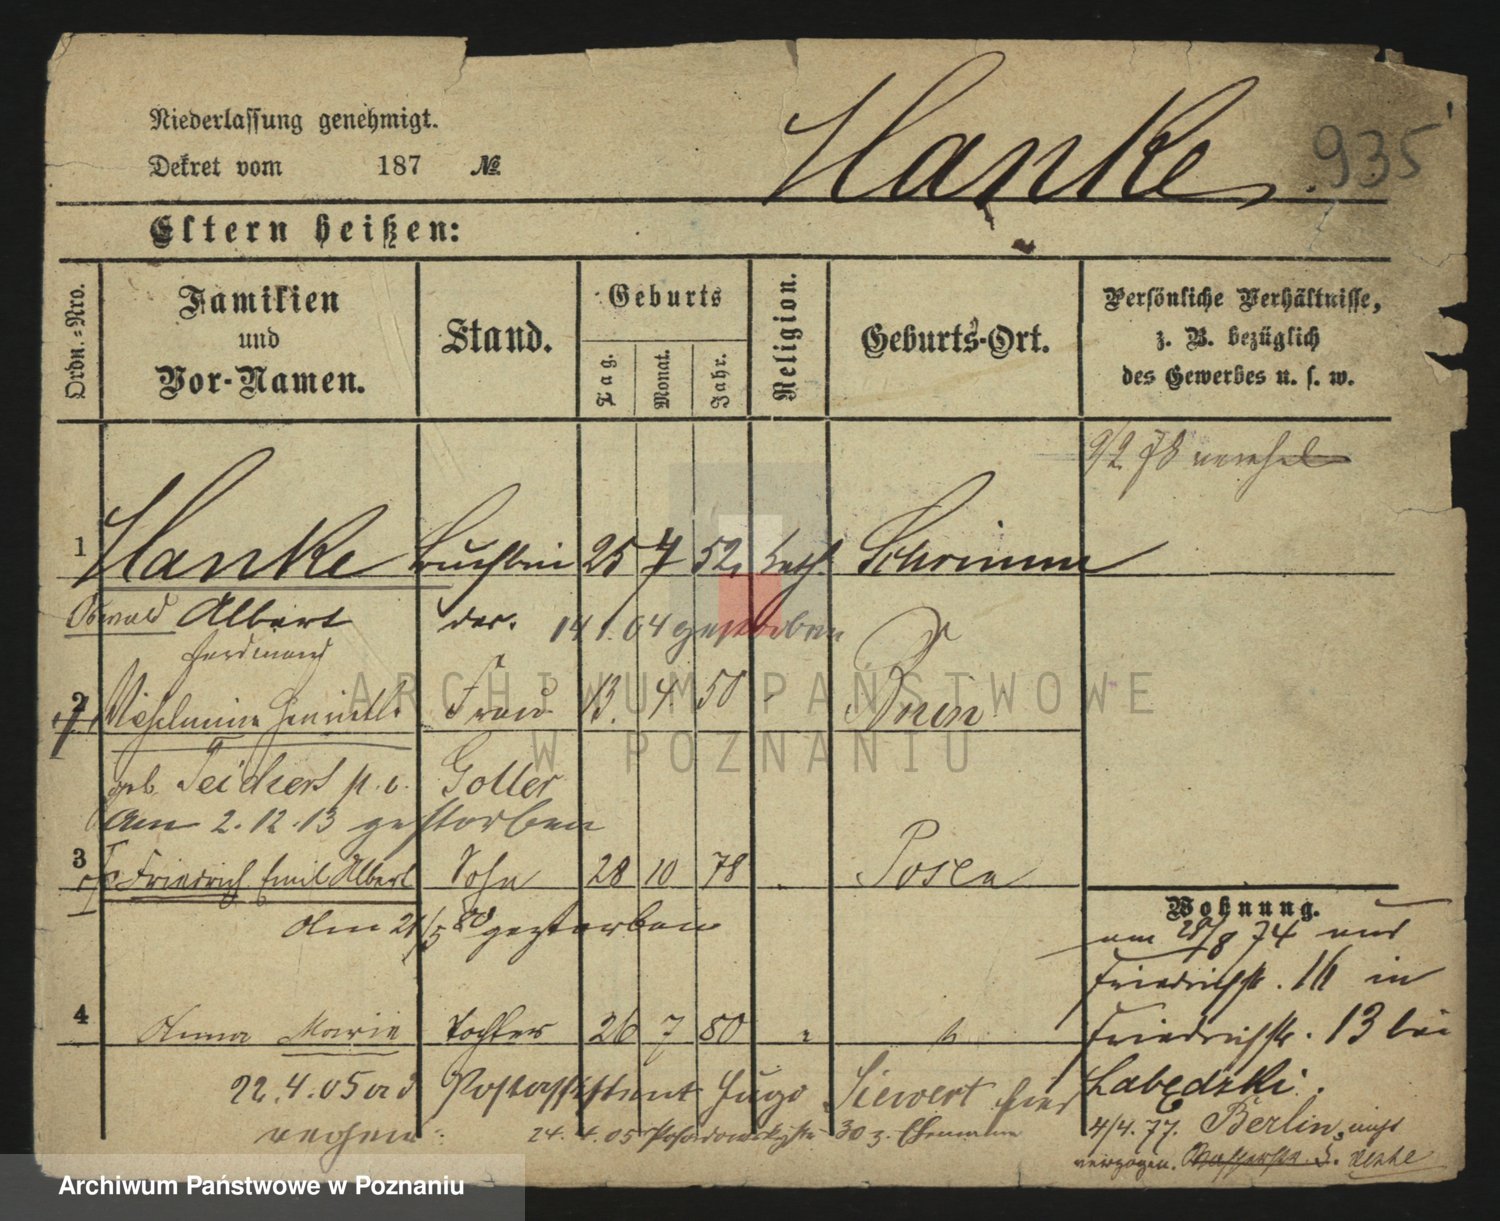 Niederlassung genehmigt.
Dekret vom 187 №
Hanke
935
Eltern heißen:
Ordn.-Nro.
Familien
und
Vor-Namen.
Stand.
Geburts
Tag.
Monat.
Jahr.
Religion.
Geburts-Ort.
Persönliche Verhältnisse,
z. B. bezüglich
des Gewerbes u. s. w.
9/2 78
1 Hanke Buchbin 25 7 52 kath. Schrimm
Oswald Albert der. 14 1.04 gestorben
Ferdinand
2 Wilhelmine Henriette Frau 13. 4. 50 Bnin
geb. Teichert Goller
Am 2.12.13 gestorben
3 Friedrich Emil Albert Sohn 28 10 78 Posen
Am 21/5 80 gestorben
Wohnung.
am 28/8 74
Friedrichstr. 16 in
4 Anna Marie Tochter 26 7 80 "
Friedrichstr. 13 bei
22.4.05 Postassistent Hugo Siewert hier
Labędzki.
24.4.05 30
4/4. 77. Berlin
verzogen.
ARCHIWUM PAŃSTWOWE
W POZNANIU
Archiwum Państwowe w Poznaniu